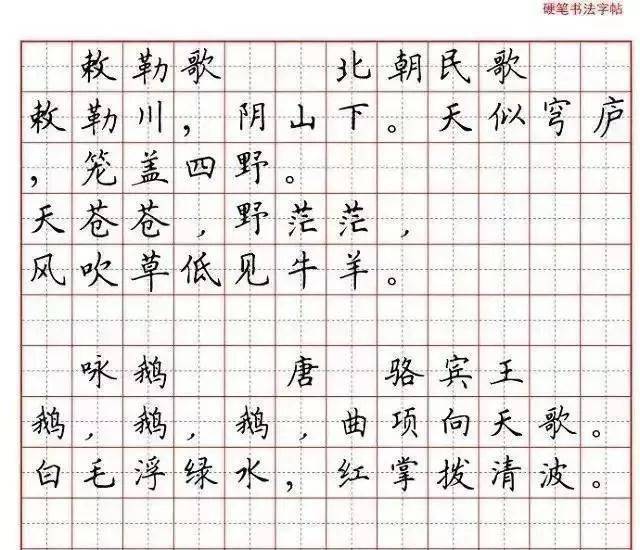 硬笔书法字帖
敕勒歌 北朝民歌
敕勒川，阴山下。天似穹庐
，笼盖四野。
天苍苍，野茫茫，
风吹草低见牛羊。
咏鹅 唐 骆宾王
鹅，鹅，鹅，曲项向天歌。
白毛浮绿水，红掌拨清波。